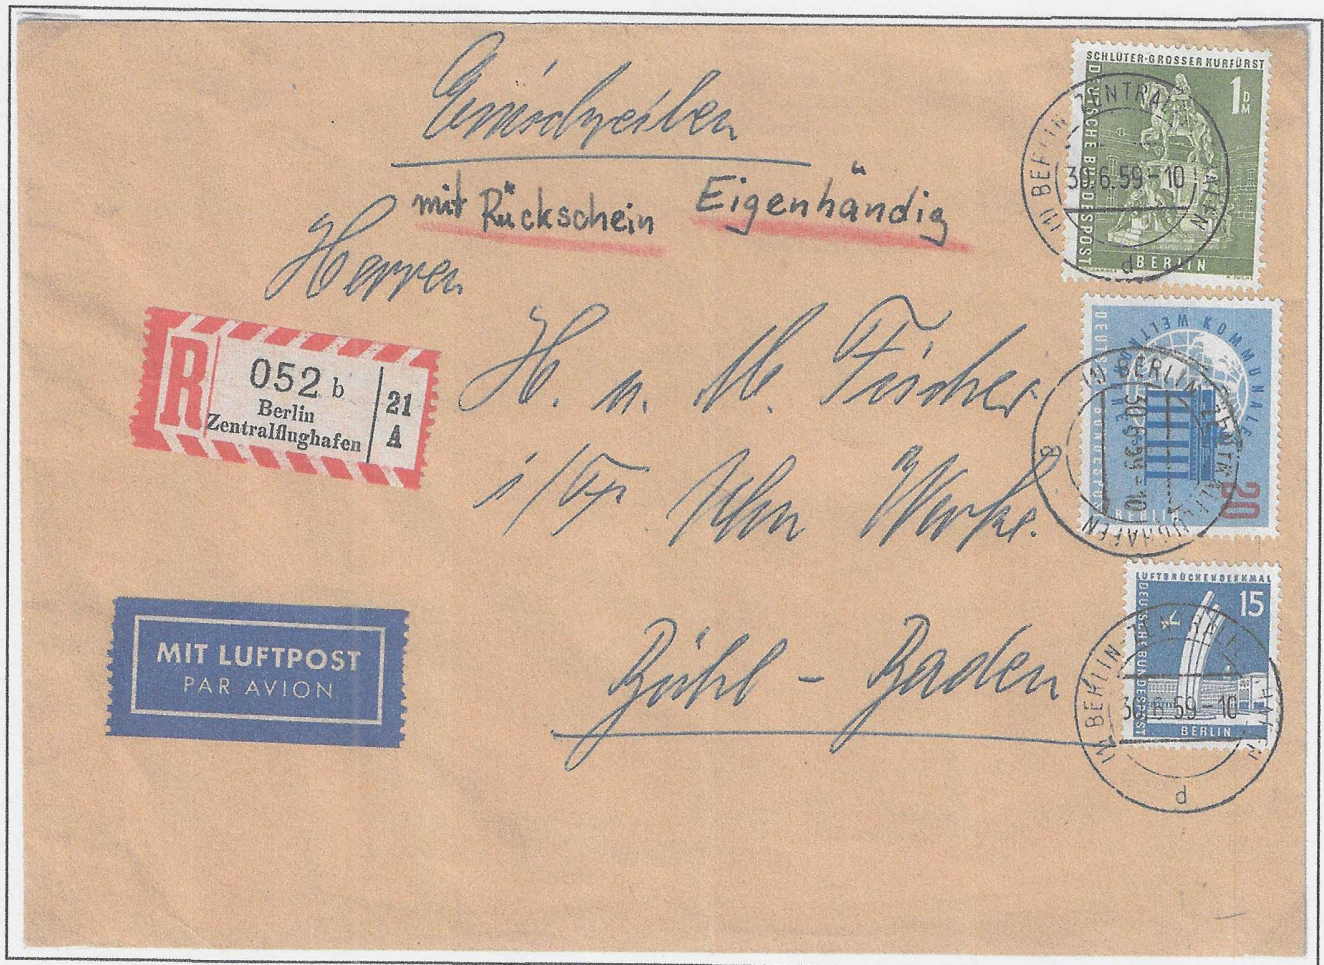 Einschreiben
mit Rückschein Eigenhändig
Herren
H. u. M. Fischer
i/Fa. Uhu Werke.
Bühl - Baden
R
052 b
Berlin
Zentralflughafen
21
A
MIT LUFTPOST
PAR AVION
SCHLÜTER·GROSSER KURFÜRST
DEUTSCHE BUNDESPOST
1 DM
BERLIN
(1) BERLIN-ZENTRALFLUGHAFEN
30.6.59-10
d
WELTKOMMUNALE
DEUTSCHE BUNDESPOST
20
BERLIN
(1) BERLIN-ZENTRALFLUGHAFEN
30.6.59-10
LUFTBRÜCKENDENKMAL
DEUTSCHE BUNDESPOST
15
BERLIN
(1) BERLIN-ZENTRALFLUGHAFEN
30.6.59-10
d